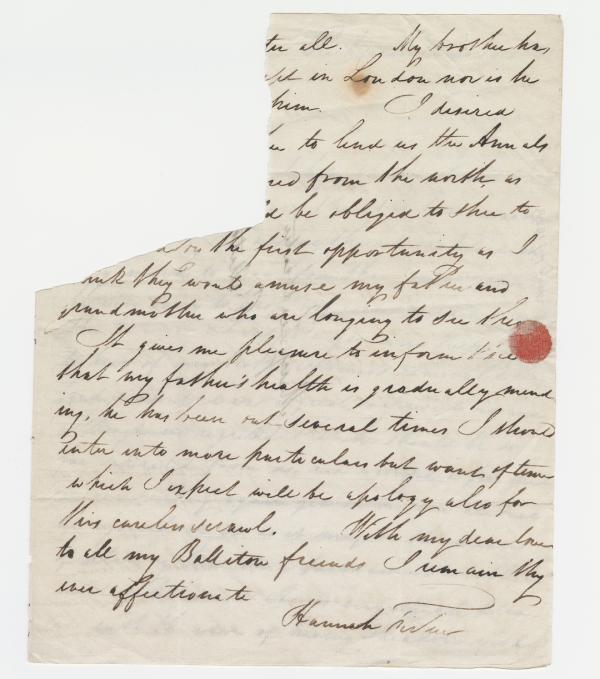 ter all. My brother has
ept in London nor is he
him. I desired
to lend us the Annals
red from the north, as
ld be obliged to thee to
the first opportunity as I
ink they would amuse my father and
grandmother who are longing to see them
It gives me pleasure to inform thee
that my father's health is gradually mend
ing, he has been out several times I should
enter into more particulars but want of time
which I expect will be apology also for
this careless scrawl. With my dear love
to all my Ballitore friends I remain thy
ever affectionate
Hannah Fisher